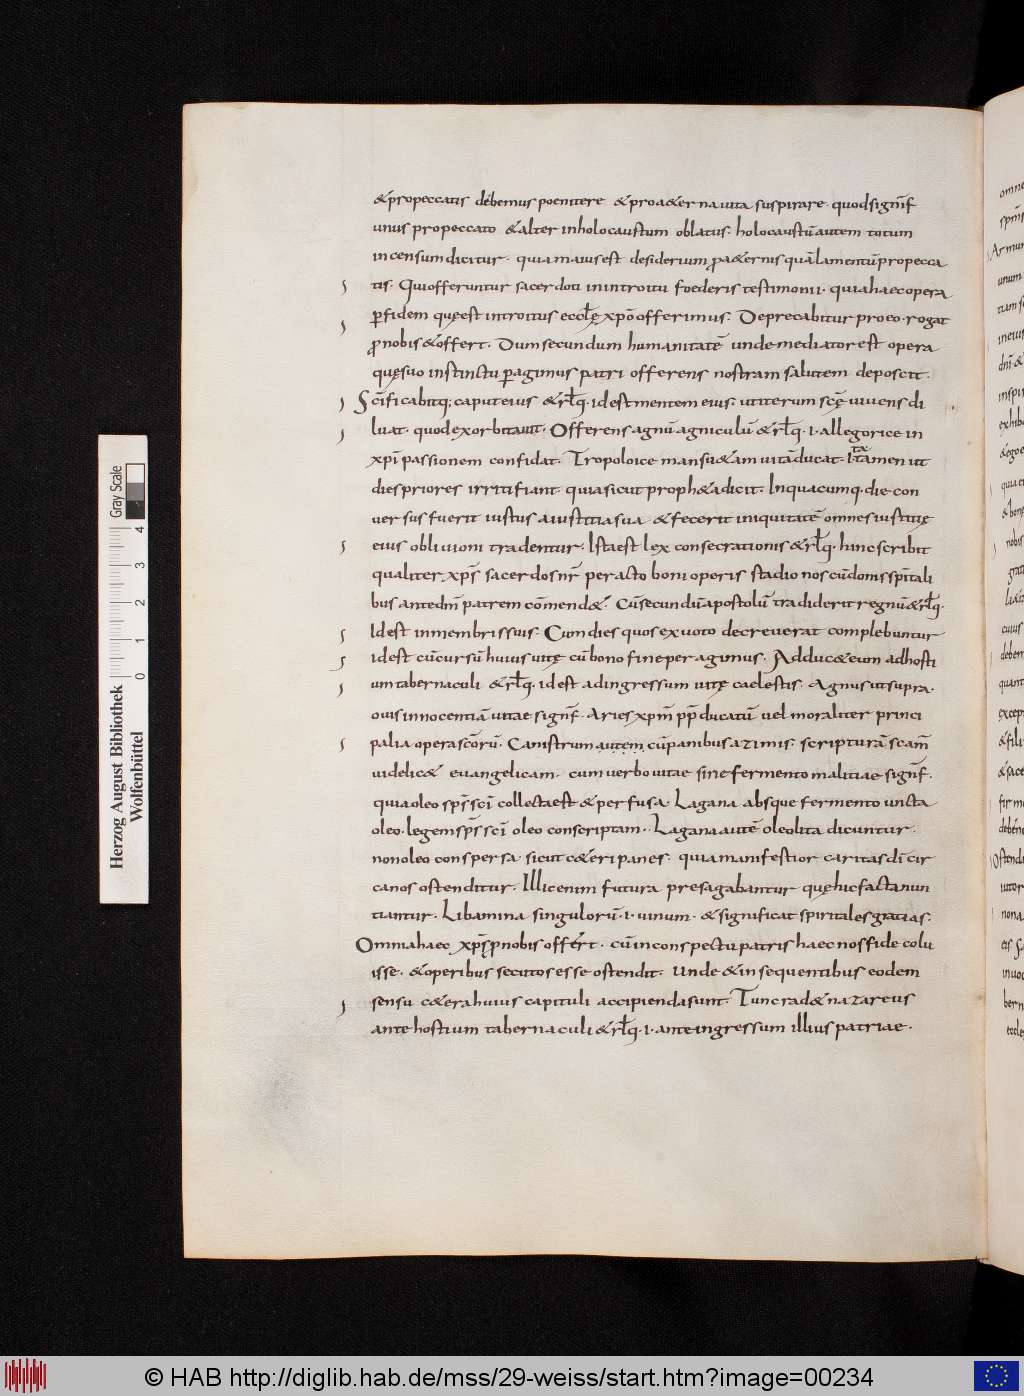 &propeccatis debemus poenitere &proa&erna uita suspirare· quod signif̄
unus propeccato &alter inholocaustum oblatus· holocaustū autem totum
incensum dicitur· quia maius est desiderium ꝓa&ernis quā lamentū propecca
tis· Qui offeruntur sacerdoti inintroitu foederis testimonii· quia haec opera
ꝑfidem quę est introitus eccłę xpō offerimus· Deprecabitur pro eo· rogat
ꝓnobis &offert· Dum secundum humanitatē unde mediator est opera
quę suo instinctu ꝑagimus patri offerens nostram salutem deposcit·
Sc̄ificabitq; caput eius &rłq· id est mentem eius· ut iterum scē uiuens di
luat· quod exorbitauit· Offerens agnū agniculū &rłq· i· allegorice in
xpī passionem confidat· Tropoloice mansu&am uitā ducat· Ita tamen ut
dies priores irriti fiant· quia sicut proph&a dicit· In quacumq· die con
uersus fuerit iustus a iustitia sua &fecerit iniquitatē omnes iustitię
eius obliuioni tradentur· Ista est lex consecrationis &rłq· hinc scribit
qualiter xp̄s sacerdos nr̄ peracto boni operis stadio nos cū donis spītali
bus ante dm̄ patrem cōmend&· Cū secundū apostolū tradiderit regnū &rłq·
Id est inmembris suis· Cum dies quos exuoto decreuerat complebuntur
id est cū cursū huius uitę cū bono fine peragimus· Adduc& eum ad hosti
um tabernaculi &rłq· id est adingressum uitę caelestis· Agnus ut supra·
ouis innocentiā uitae signif̄· Aries xpm̄ pp̄ ducatū uel moraliter princi
palia opera scōrū· Canistrum autem cū panibus azimis· scripturā scam̄
uidelic& euangelicam· cum uerbo uitae sine fermento malitiae signif̄·
quia oleo sps̄ sc̄i collecta est &perfusa· Lagana absque fermento uncta
oleo· legem sps̄ sc̄i oleo conscriptam· Lagana autē oleo lita dicuntur·
non oleo conspersa· sicut c&eri panes· quia manifestior caritas dī cir
ca nos ostenditur· Illic enim futura presagabantur quę hic facta nun
tiantur· Libamina singulorū· i· uinum· &significat spiritales gratias·
Omnia haec xp̄s ꝓnobis offert· cū inconspectu patris haec nos fide colu
isse· &operibus secutos esse ostendit· unde &in sequentibus eodem
sensu c&era huius capituli accipienda sunt· Tunc rad& nazareus
ante hostium tabernaculi &rłq· i· ante ingressum illius patriae·
Herzog August Bibliothek
Wolfenbüttel
Gray Scale
0 1 2 3 4
© HAB http://diglib.hab.de/mss/29-weiss/start.htm?image=00234